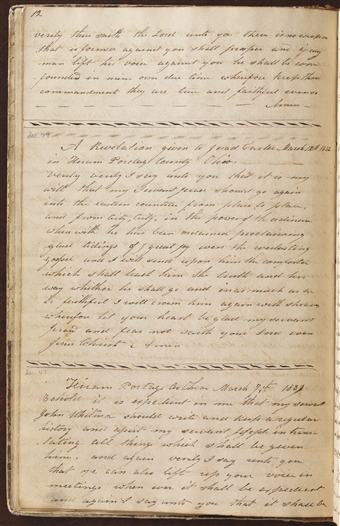 12.
verily thus saith the Lord unto you there is no weapon
that is formed against you shall prosper and if any
man lift his voice against you he shall be con
founded in mine own due time wherefore keep these
commandments they are true and faithful even so
Amen
A Revelation given to Jesse March 12th 1832
in Hiram Portage County Ohio
Verily verily I say unto you that it is my
will that my Servant Jesse should go again
into the eastern countries from place to place,
and from city to city in the power of the ordinance
wherewith he has been ordained proclaiming
glad tidings of great joy even the everlasting
gospel and I will send upon him the comforter
which shall teach him the truth and the
way whither he shall go and inasmuch as he
is faithful I will crown him again with sheaves
wherefore let your heart be glad my servant
and fear not saith your Lord even
Jesus Christ Amen
Sec. 47
Hiram Portage Co Ohio March 183
Behold it is expedient in me that my servant
John Whitmer should write and keep a regular
history and assist my servant Joseph in trans
lating all things which shall be given
him. and again verily I say unto you
that he can also lift up your voice in
meetings when ever it shall be expedient
and again I say unto you that it shall be